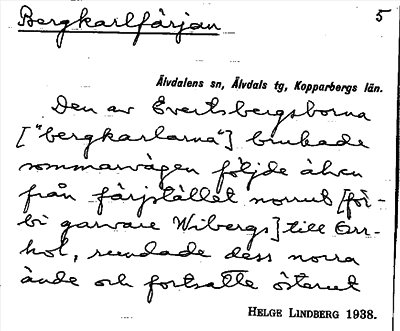 Bergkarlfärjan
5
Älvdalens sn, Älvdals tg, Kopparbergs län.
Den av Evertsbergsborna
["bergkarlarna"] brukade
sommarvägen följde älven
från färjstället norrut [för-
bi garvare Wibergs] till Err-
hol, rundade dess norra
ände och fortsatte österut
HELGE LINDBERG 1938.